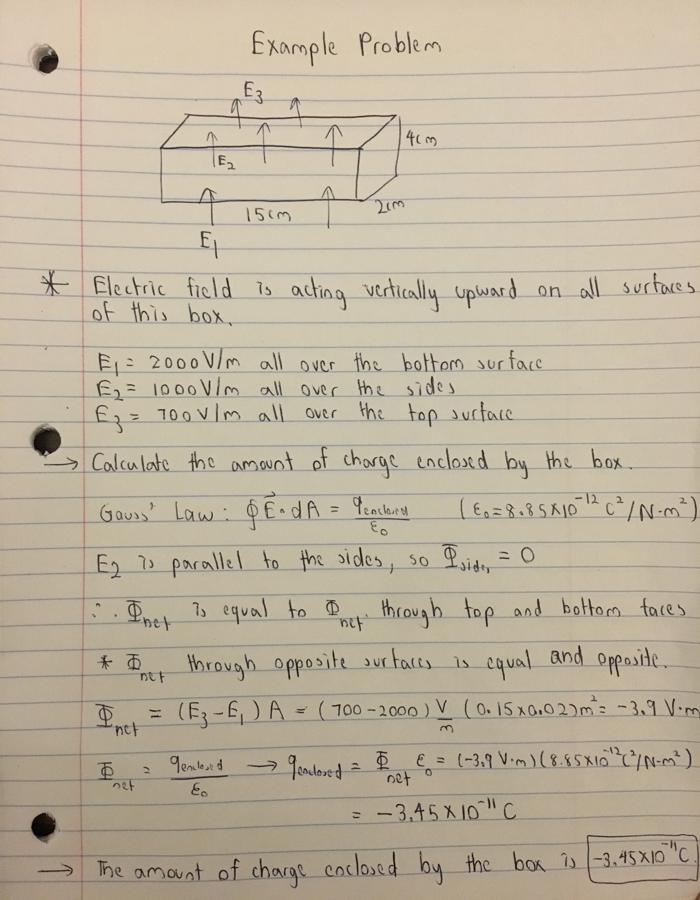 Example Problem
E3
4cm
E2
15cm
2cm
E1
* Electric field is acting vertically upward on all surfaces
of this box.
E1 = 2000 V/m all over the bottom surface
E2 = 1000 V/m all over the sides
E3 = 700 V/m all over the top surface
→ Calculate the amount of charge enclosed by the box.
Gauss' Law: ∮E⃗·dA = qenclosed/ε0 (ε0 = 8.85×10⁻¹² C²/N·m²)
E2 is parallel to the sides, so Φsides = 0
∴ Φnet is equal to Φnet through top and bottom faces
* Φnet through opposite surfaces is equal and opposite.
Φnet = (E3 - E1) A = (700 - 2000) V/m (0.15×0.02)m² = -3.9 V·m
Φnet = qenclosed/ε0 → qenclosed = Φnet ε0 = (-3.9 V·m)(8.85×10⁻¹² C²/N·m²)
= -3.45×10⁻¹¹ C
→ The amount of charge enclosed by the box is -3.45×10⁻¹¹ C.